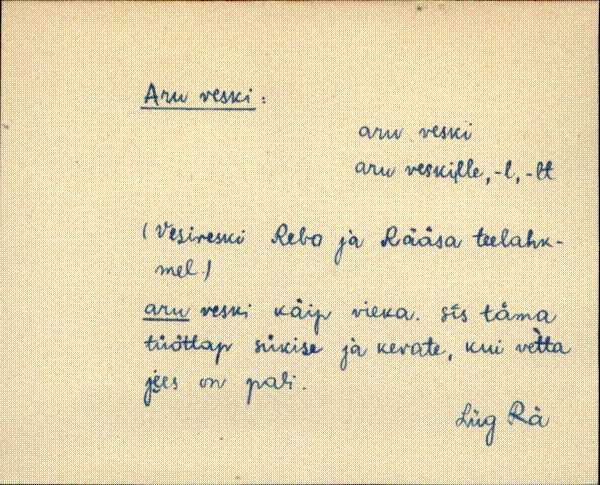 Aru veski:
aru veski
aru veskille, -l, -lt
(Vesiveski Rebo ja Rääsa teelahk-
mel.)
aru veski käip vieka. siis täma
tüöttap sükise ja kevate, kui vetta
jões on pali.
Lüg Rä